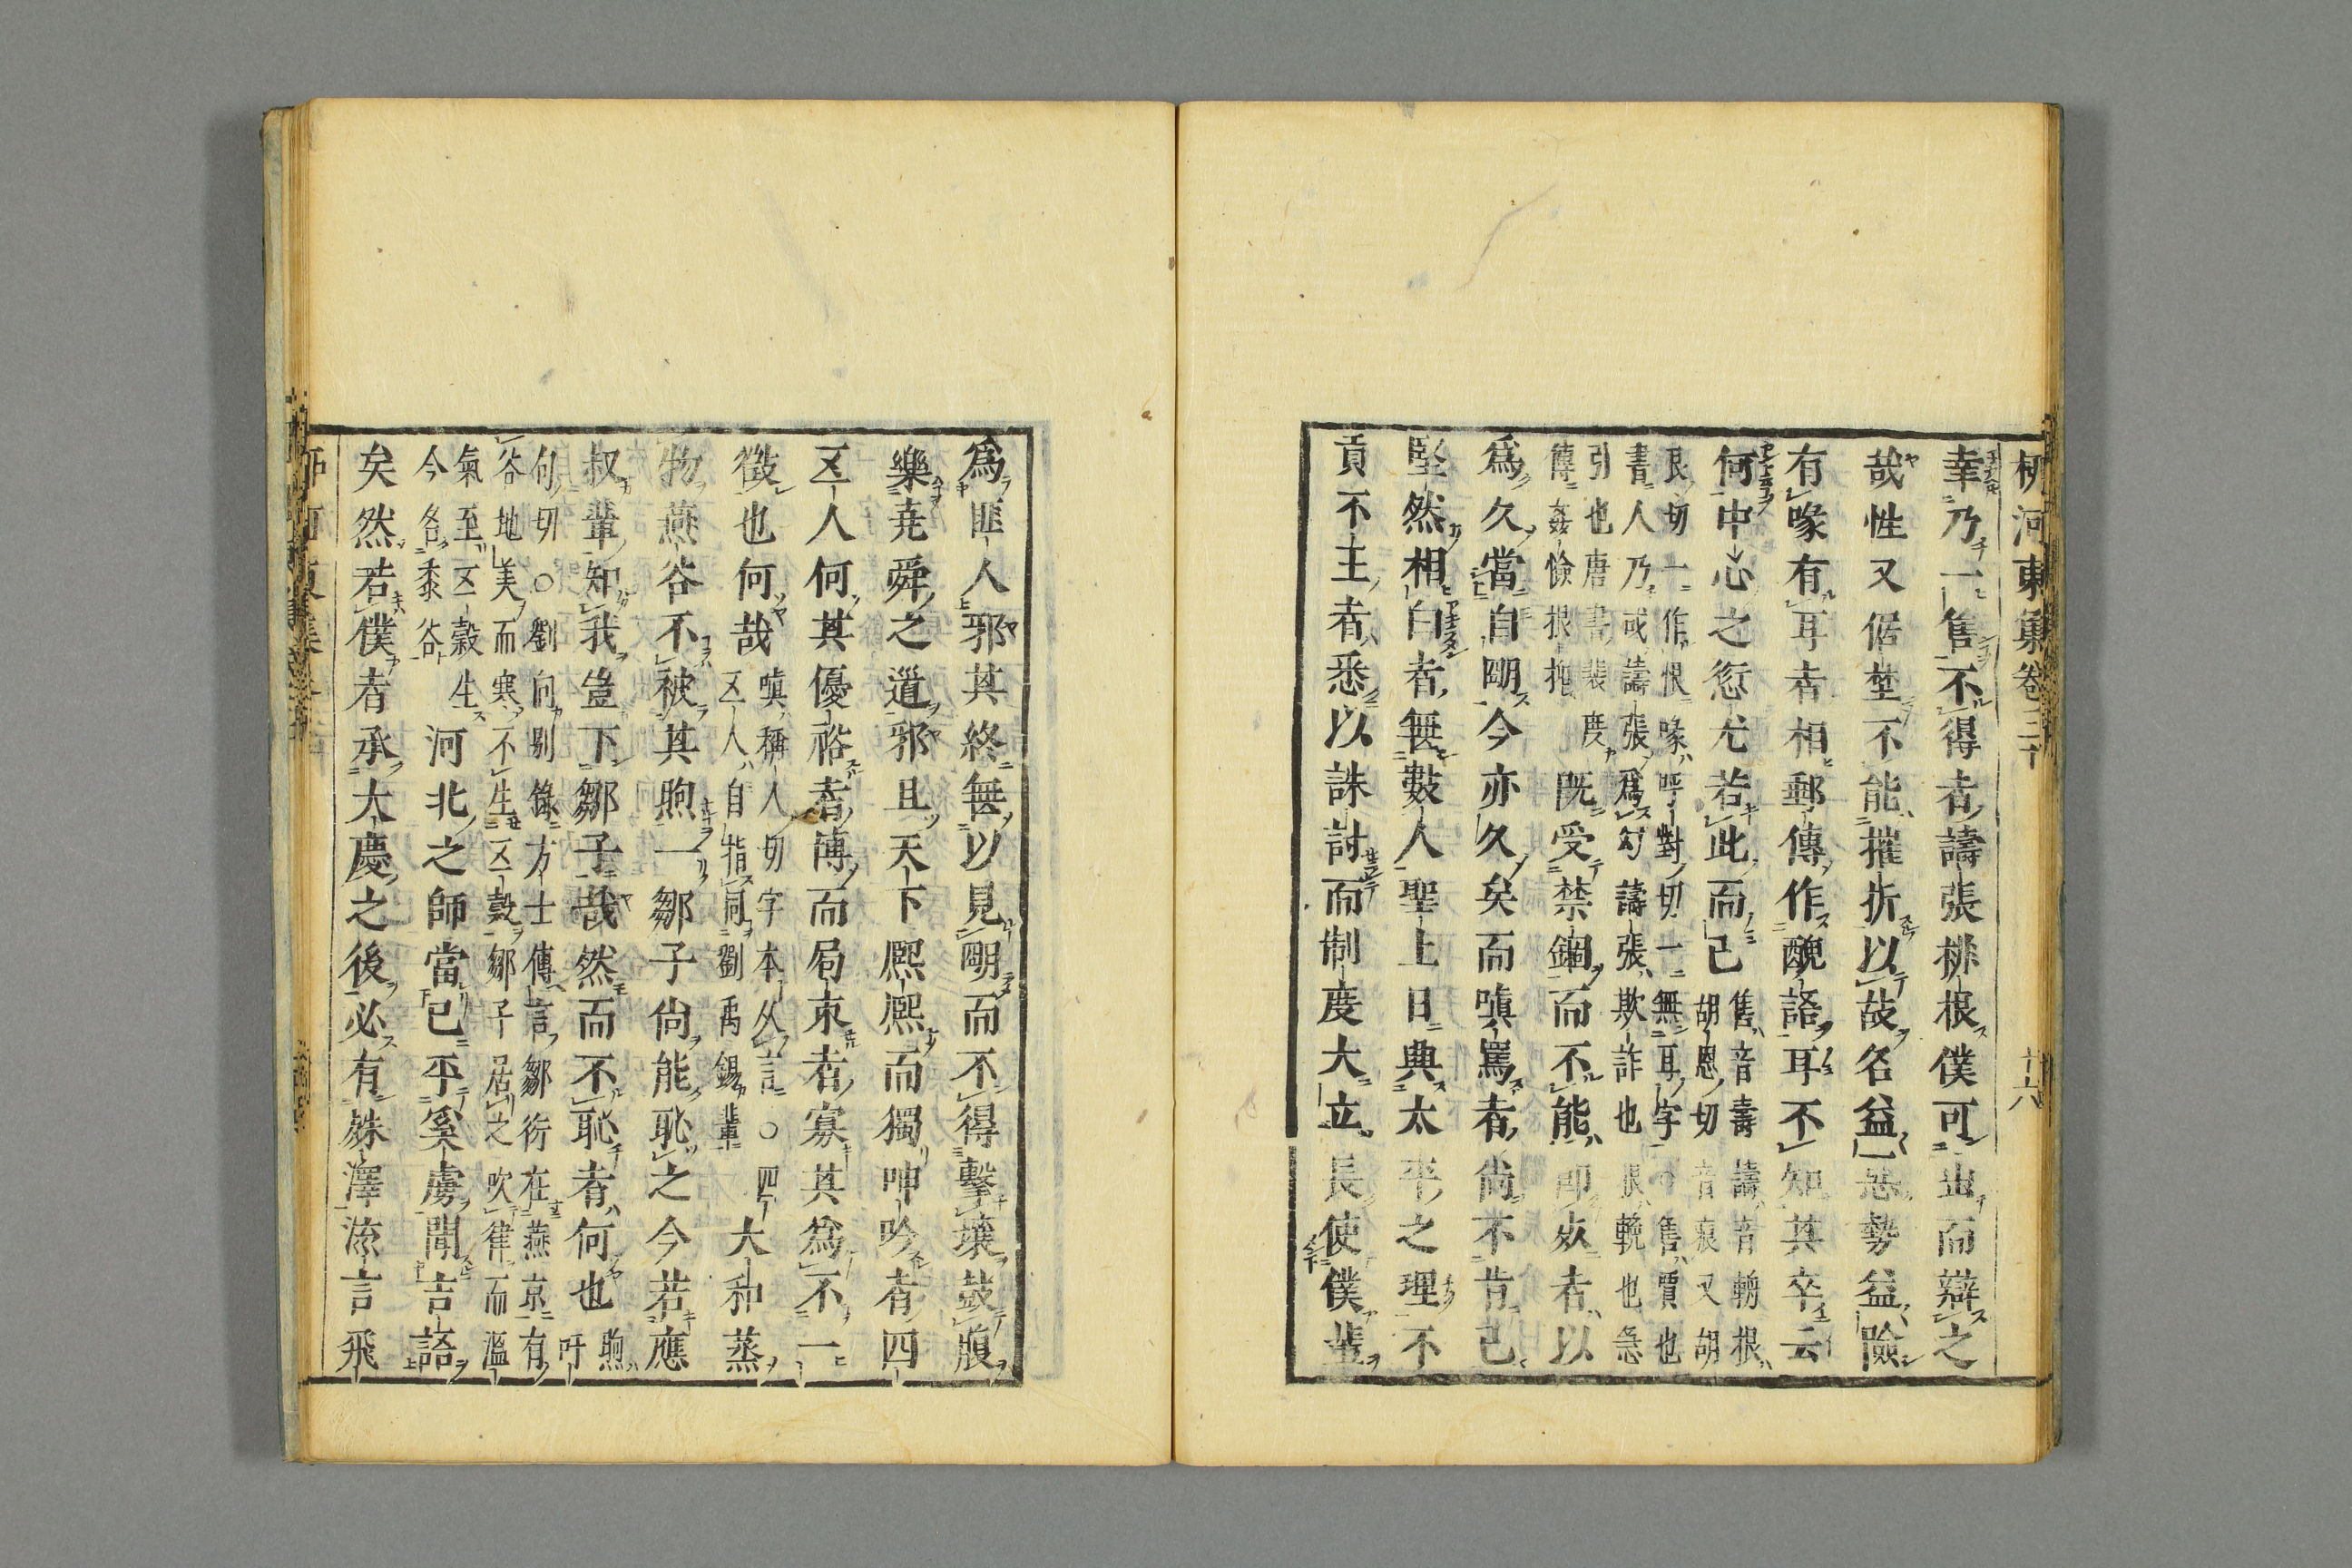 柳河東集卷三十
十六
幸乃一售不得者譸張排根僕可出而辯之
哉性又倨埜不能摧折以故名益惡勢益險
有喙有耳者相郵傳作醜語耳不知其卒云
何中心之愆尤若此而已
售音壽譸音輈根
胡恩切音痕又胡
艮切一作恨喙呼對切一無耳字○售賣也
書人乃或譸張爲幻譸張欺詐也根輓也急
引也唐書裴度
傳姦憸根抱
既受禁錮而不能即死者以
爲久當自明今亦久矣而嗔罵者尚不肯已
堅然相白者無數人聖上日典太平之理不
貢不王者悉以誅討而制度大立長使僕輩
爲匪人邪其終無以見明而不得擊壤鼓腹
樂堯舜之道邪且天下熙熙而獨呻吟者四
五人何其優裕者博而局束者寡其爲不一
徵也何哉
嗔稱人切字本从言○四
五人自指同劉禹錫輩
大和蒸
物燕谷不被其煦一鄒子尚能恥之今若應
叔輩知我豈下鄒子哉然而不恥者何也
煦
吁
句切○劉向別錄方士傳言鄒衍在燕京有
谷地美而寒不生五穀鄒子居之吹律而溫
氣至五穀生
今名黍谷
河北之師當已平奚虜聞吉語
矣然若僕者承大慶之後必有殊澤流言飛